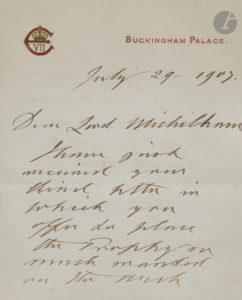 VII
BUCKINGHAM PALACE.
July 29 - 1907.
Dear Lord Michelham
I have just
received your
kind letter in
which you
offer to place
the Trophy so
much needed
on the Arch